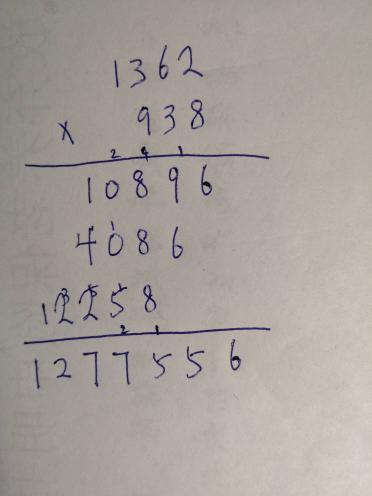 1362
× 938
2 4 1
10896
4086
12258
2 1
1277556